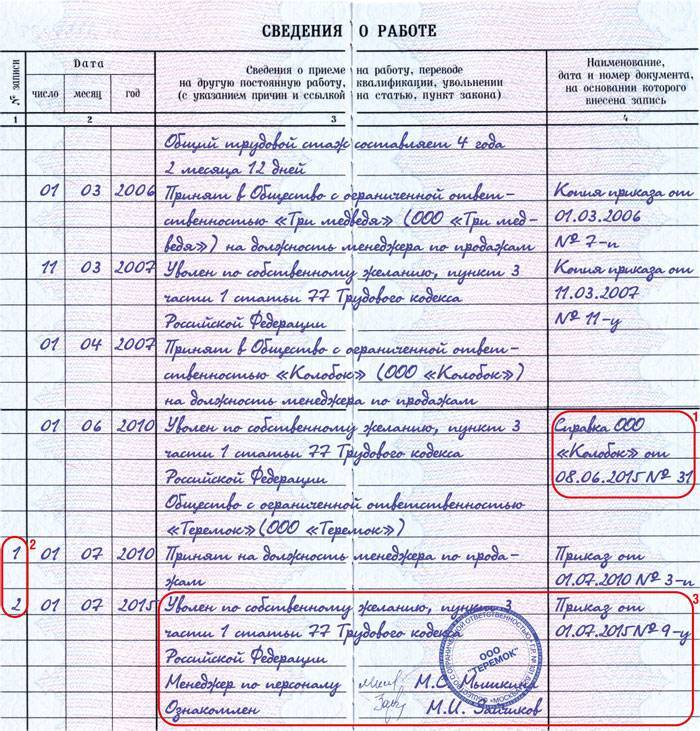 СВЕДЕНИЯ О РАБОТЕ
№ записи
Дата
число
месяц
год
Сведения о приеме на работу, переводе
на другую постоянную работу, квалификации, увольнении
(с указанием причин и ссылкой на статью, пункт закона)
Наименование,
дата и номер документа,
на основании которого
внесена запись
1 2 3 4
Общий трудовой стаж составляет 4 года
2 месяца 12 дней
01 03 2006 Принят в Общество с ограниченной ответ- Копия приказа от
ственностью «Три медведя» (ООО «Три мед- 01.03.2006
ведя») на должность менеджера по продажам № 7-п
11 03 2007 Уволен по собственному желанию, пункт 3 Копия приказа от
части 1 статьи 77 Трудового кодекса 11.03.2007
Российской Федерации № 11-у
01 04 2007 Принят в Общество с ограниченной ответ-
ственностью «Колобок» (ООО «Колобок»)
на должность менеджера по продажам
01 06 2010 Уволен по собственному желанию, пункт 3 Справка ООО 1
части 1 статьи 77 Трудового кодекса «Колобок» от
Российской Федерации 08.06.2015 № 31
Общество с ограниченной ответственностью
«Теремок» (ООО «Теремок»)
1 2 01 07 2010 Принят на должность менеджера по прода- Приказ от
жам 01.07.2010 № 3-п
2 01 07 2015 Уволен по собственному желанию, пункт 3 Приказ от 3
части 1 статьи 77 Трудового кодекса 01.07.2015 № 9-у
Российской Федерации
Менеджер по персоналу М.С. Мышкина
Ознакомлен М.И. Зайчиков
ООО
"ТЕРЕМОК"